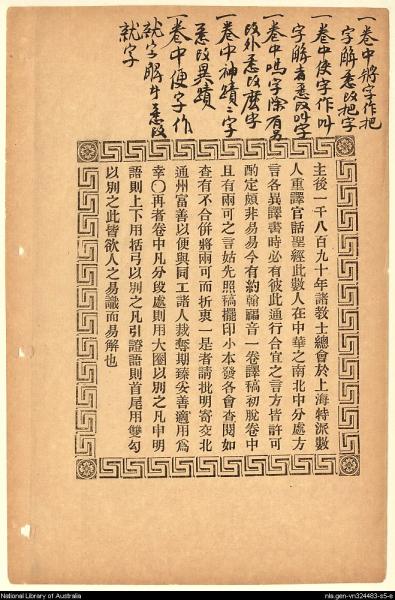 一卷中將字作把
字解悉改把字
一卷中使字作叫
字解者悉改叫字
一卷中嗎字除有另
改外悉改麽字
一卷中神蹟二字
悉改異蹟
一卷中便字作
就字解者悉改
就字
主後一千八百九十年諸教士總會於上海特派數
人重譯官話聖經此數人在中華之南北中分處方
言各異譯書時必有彼此通行合宜之言方皆許可
酌定頗非易易今有約翰福音一卷譯稿初脫卷中
且有兩可之言姑先照稿擺印小本發各會查閱如
查有不合併將兩可而折衷一是者請批明寄交北
通州富善以便與同工諸人裁奪期臻妥善適用爲
幸〇再者卷中凡分段處則用大圈以別之凡申明
語則上下用括弓以別之凡引證語則首尾用雙勾
以別之此皆欲人之易識而易解也
National Library of Australia
nla.gen-vn324483-s5-e